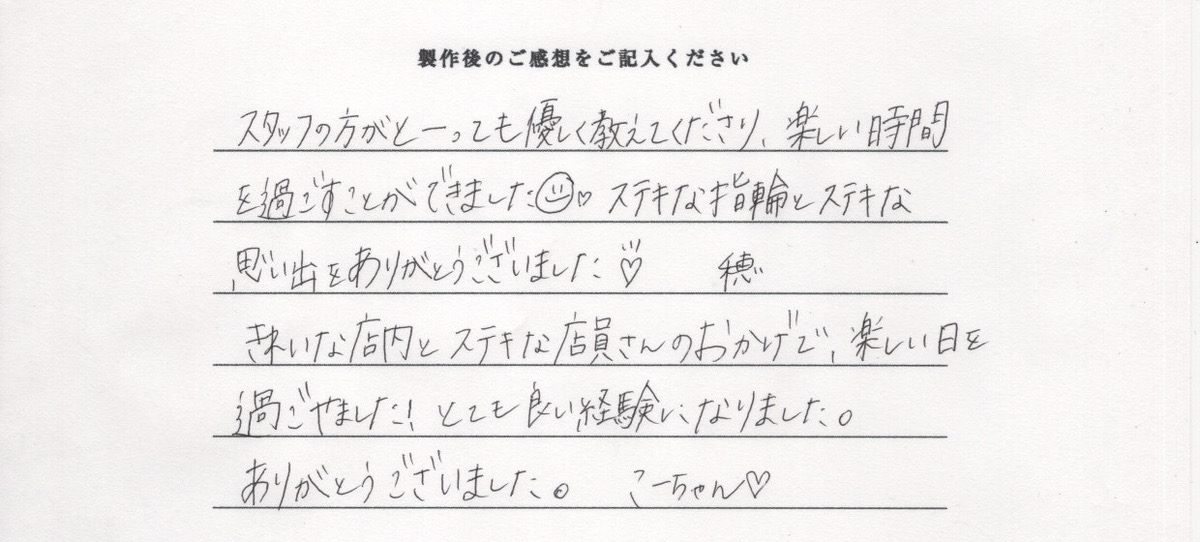 製作後のご感想をご記入ください
スタッフの方がとーっても優しく教えてくださり、楽しい時間
を過ごすことができました☺♡ ステキな指輪とステキな
思い出をありがとうございました♡ 穂
きれいな店内とステキな店員さんのおかげで、楽しい日を
過ごやました! とても良い経験になりました。
ありがとうございました。 こーちゃん♡